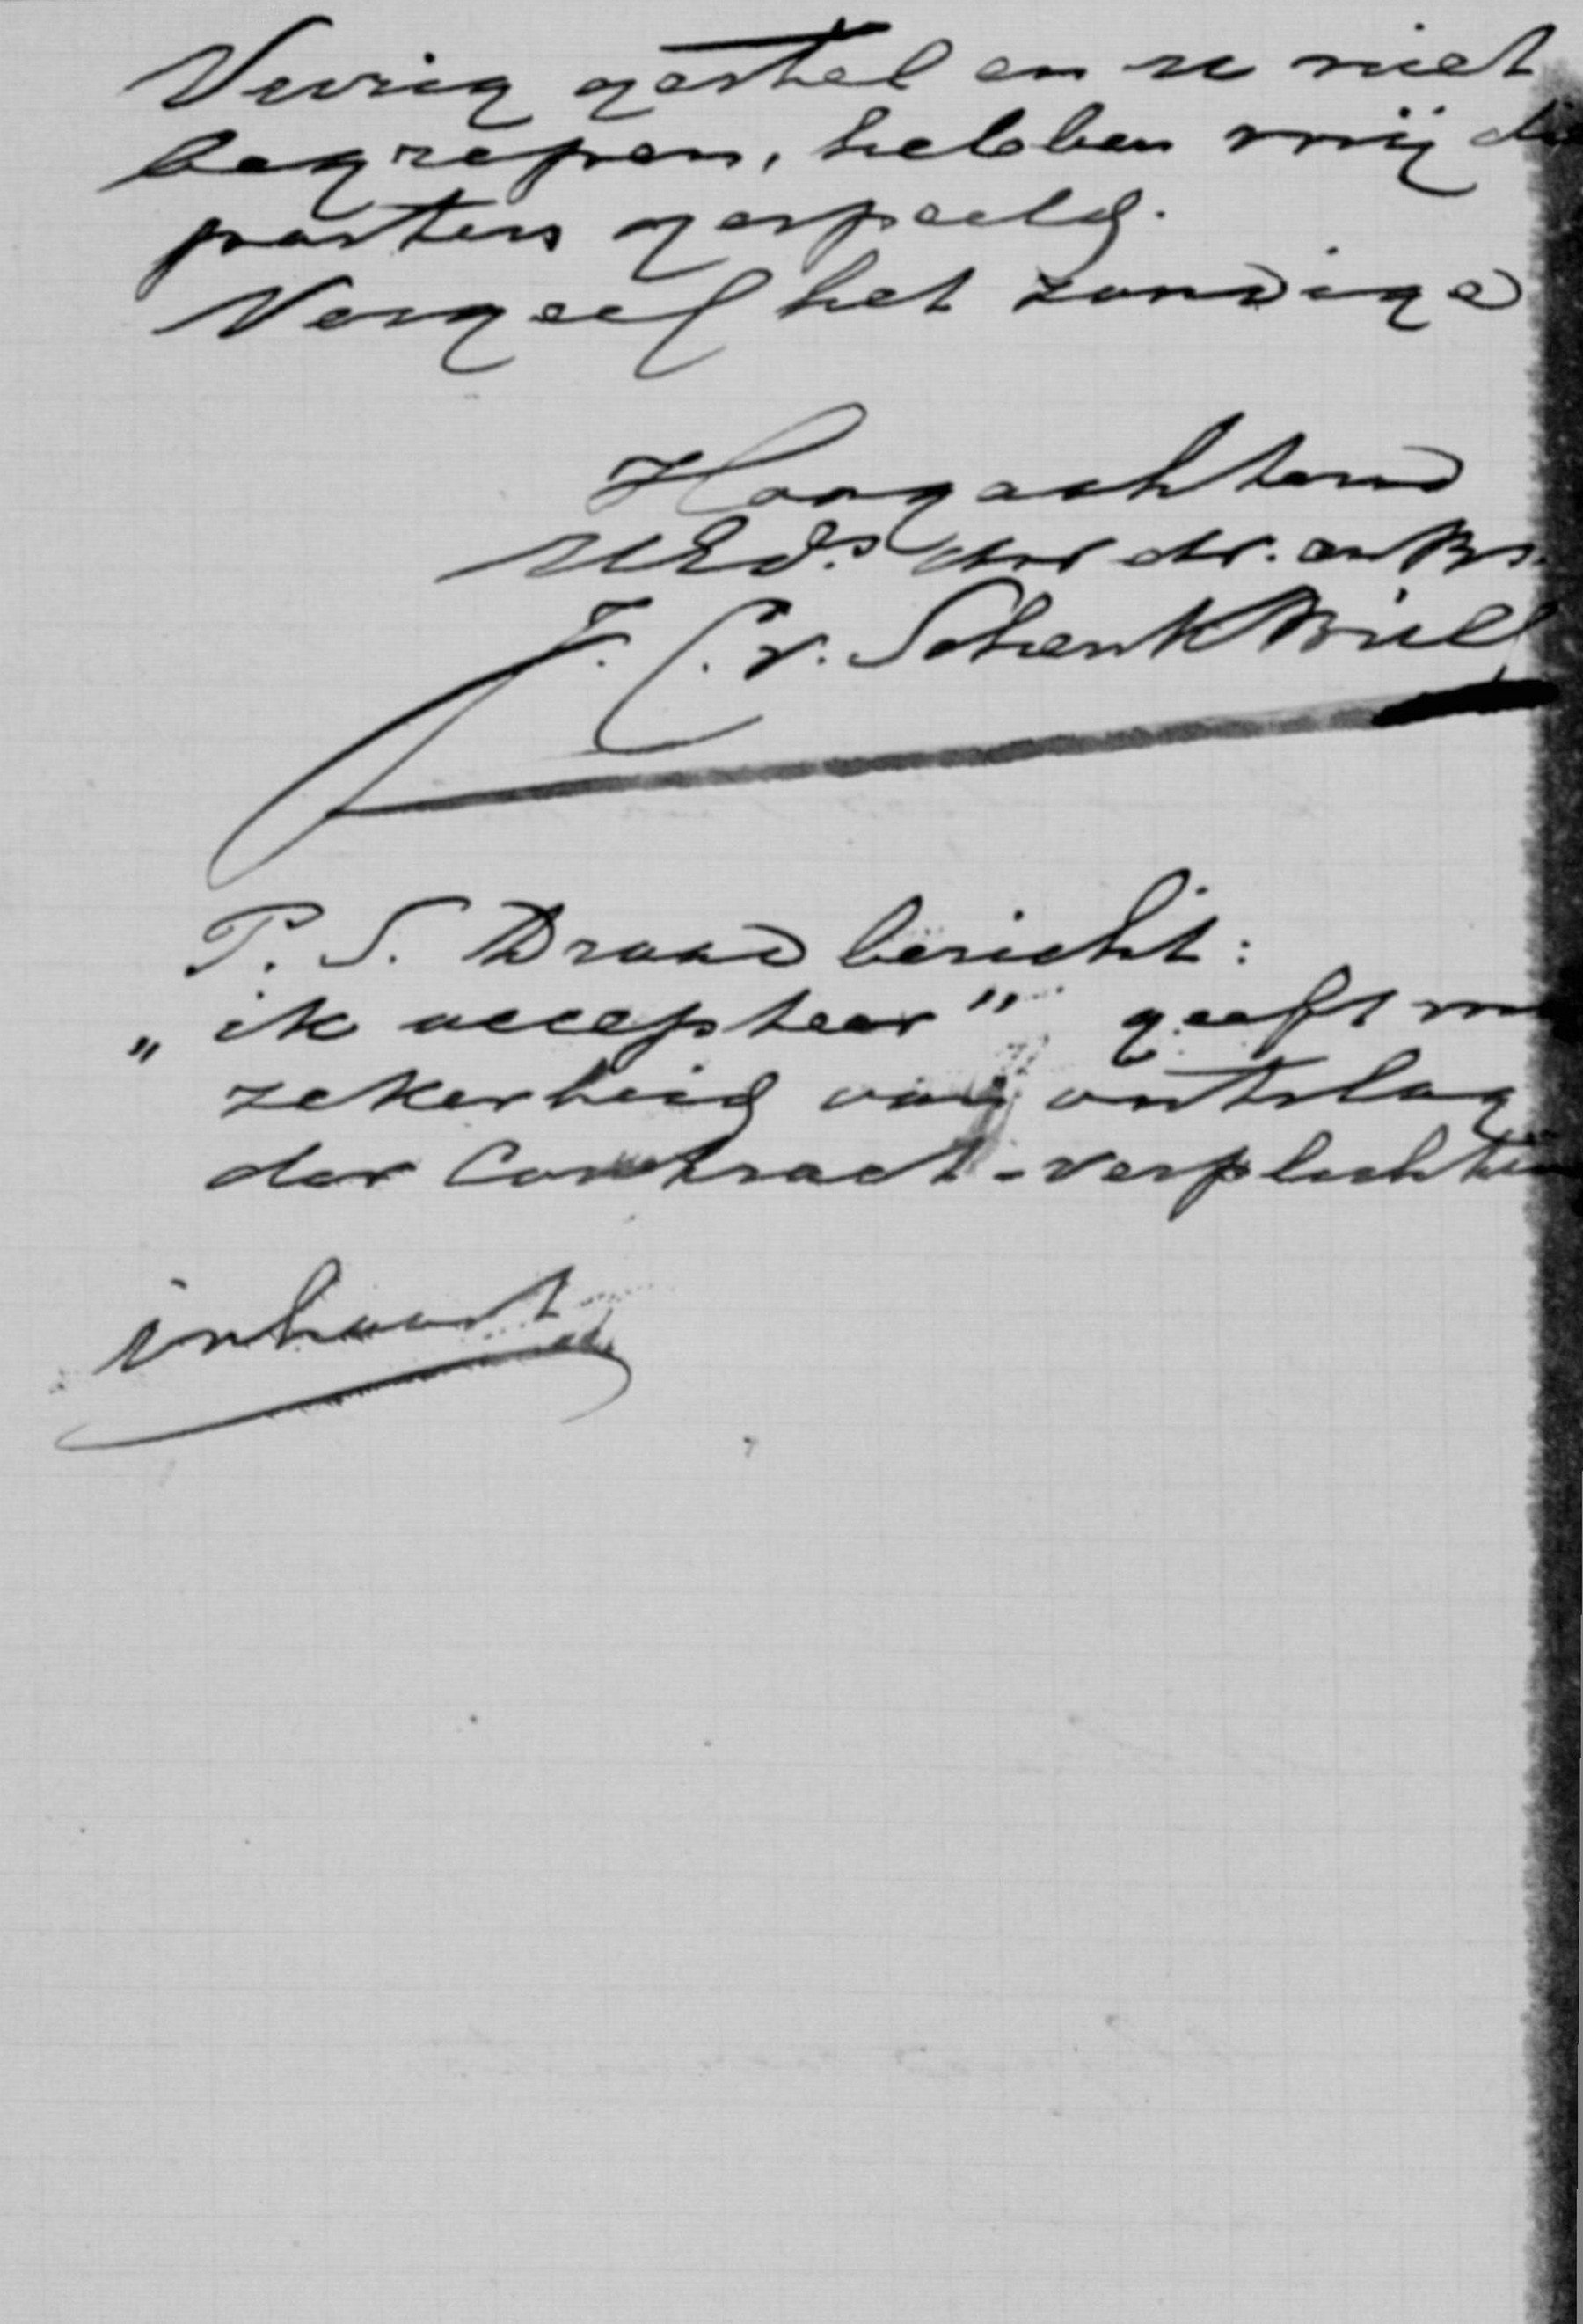 Veurig gestel en u niet
begrepen, hebben mij die
parten gespeeld.
Vergeef het zondige
Hoogachtend
UEds dw dr. en Brs.
J. C. v. Schenk Brill
P. S. Draad bericht:
„ ik accepteer " geeft me
zekerheid van ontslag
der Contract-verplichtin
inhoud